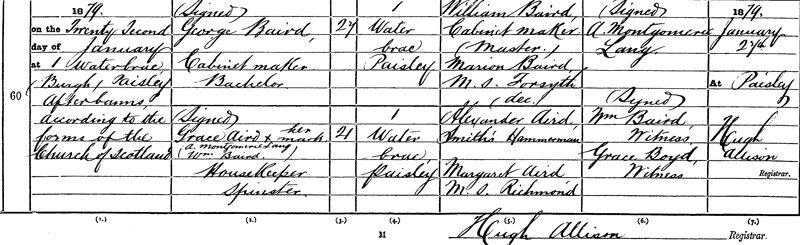 60
1879.
on the Twenty Second
day of January
at 1 Waterbrae
(Burgh) Paisley
After banns,
according to the
forms of the
Church of Scotland
(Signed)
George Baird,
Cabinet maker
Bachelor
(Signed)
Grace Aird x her mark
A Montgomerie Lang
(Wm Baird,
Housekeeper
Spinster.
27
21
1
Water
brae
Paisley
1
Water
brae,
Paisley
William Baird,
Cabinet maker
(Master.)
Marion Baird,
M.S. Forsyth
(dec.)
Alexander Aird,
Smith's Hammerman
Margaret Aird
M.S. Richmond
(Signed)
A. Montgomerie
Lang.
(Signed)
Wm Baird,
Witness
Grace Boyd,
Witness
1879.
January
27th
At Paisley
Hugh
Allison
Registrar.
(1.) (2.) (3.) (4.) (5.) (6.) (7.)
M
Hugh Allison Registrar.